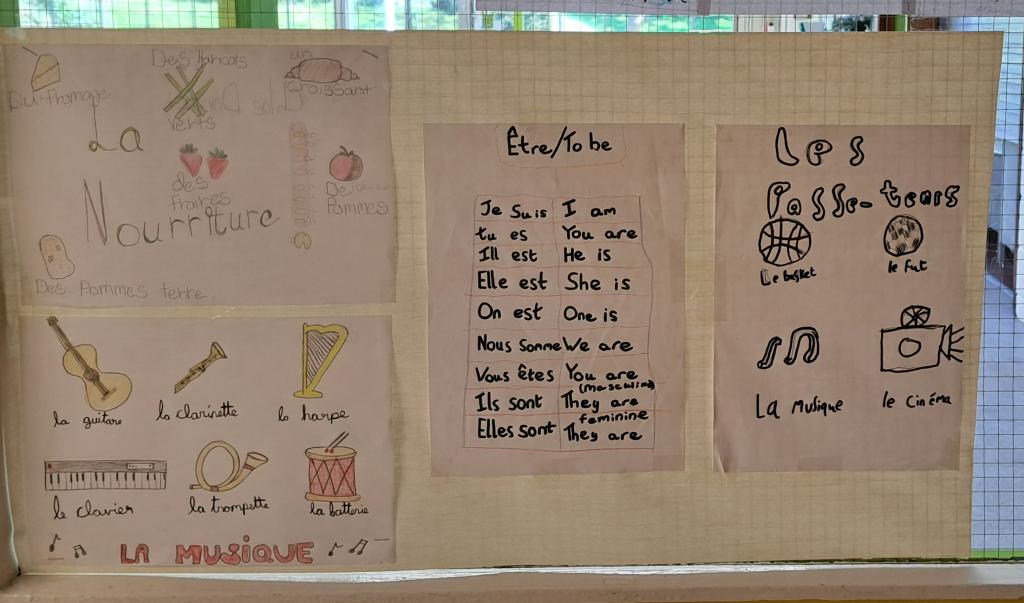 Du fromage
Des Haricots
verts
un
Croissant
La
des
fraires
De
Pommes
Nourriture
Des Pommes terre
la guitare
la clarinette
la harpe
le clavier
la trompette
la batterie
LA MUSIQUE
Être/To be
Je Suis I am
tu es You are
Ill est He is
Elle est She is
On est One is
Nous Somme We are
Vous êtes You are
(masculine)
Ils sont They are
feminine
Elles sont They are
Les
Passe-tems
Le basket
le fut
La Musique
le Cinéma